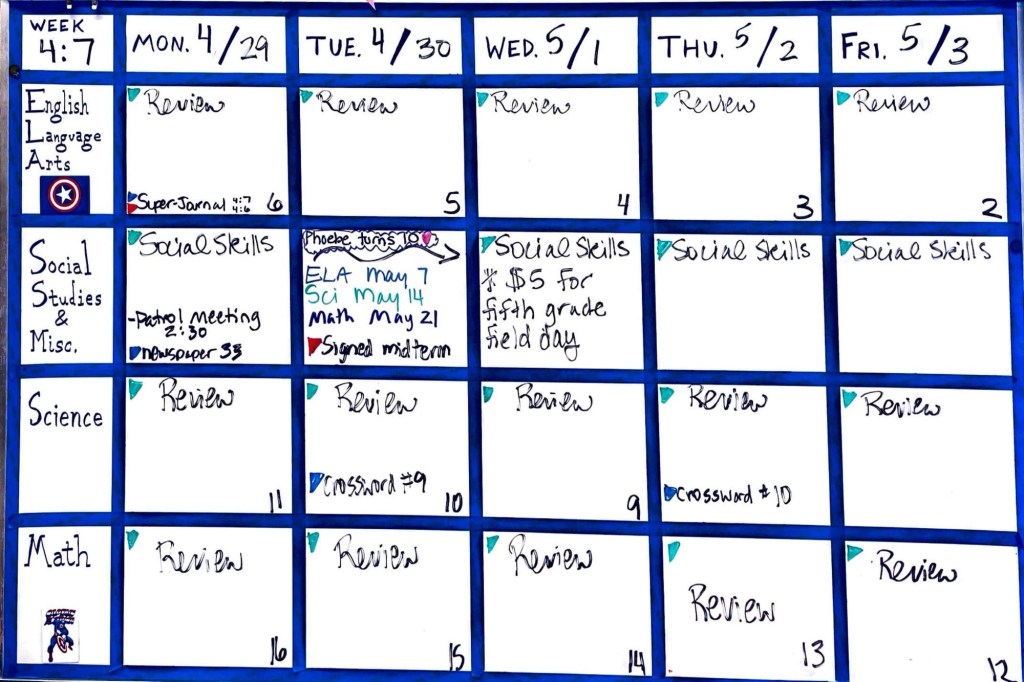 WEEK
4:7
MON. 4/29
TUE. 4/30
WED. 5/1
THU. 5/2
FRI. 5/3
English
Language
Arts
Review
Super-Journal 4:7
4:6
6
Review
5
Review
4
Review
3
Review
2
Social
Studies
&
Misc.
Social Skills
-Patrol meeting
2:30
newspaper 33
Phoebe turns 10
ELA May 7
Sci May 14
Math May 21
Signed midterm
Social Skills
* $5 for
fifth grade
field day
Social Skills
Social Skills
Science
Review
11
Review
Crossword #9
10
Review
9
Review
Crossword #10
Review
Math
Review
16
Review
15
Review
14
Review
13
Review
12